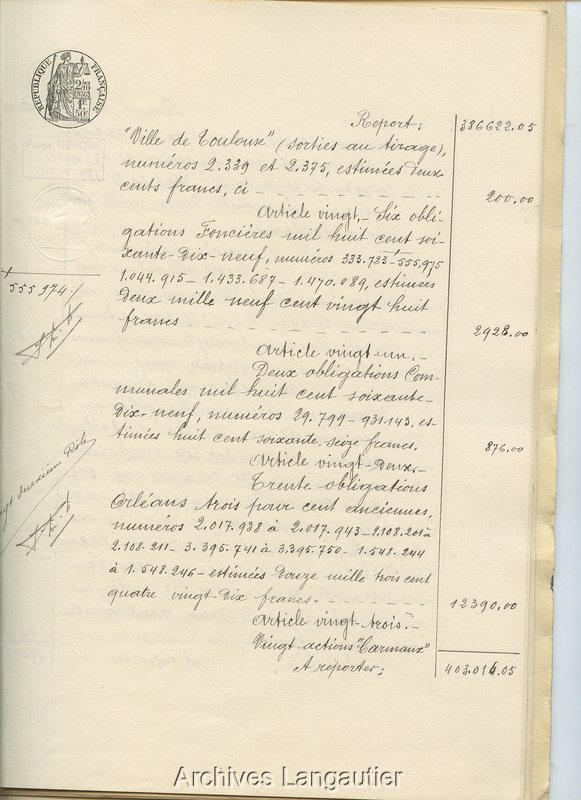 RÉPUBLIQUE FRANÇAISE
2/10 EN SUS
1F. 50c
Report: 386622.05
"Ville de Toulouse" (sorties au tirage),
numéros 2.339 et 2.375, estimées deux
cents francs, ci 200.00
Article vingt.- Six obli-
gations Foncières mil huit cent soi-
xante-dix-neuf, numéros 333.723-555.975
1.044.915-1.433.687-1.470.089, estimées
deux mille neuf cent vingt huit
francs 2928.00
+
555974./.
Article vingt-un.-
Deux obligations Com-
munales mil huit cent soixante-
dix-neuf, numéros 29.799-931.143, es-
timées huit cent soixante-seize francs. 876.00
Article vingt-deux.-
Trente obligations
Orléans trois pour cent anciennes,
numéros 2.017.938 à 2.017.943-2.108.201 à
2.108.211-3.395.741 à 3.395.750-1.548.244
à 1.548.246-estimées douze mille trois cent
quatre vingt-dix francs.- 12390.00
deuxième Rôle
Article vingt-trois.-
Vingt actions "Carmaux"
A reporter: 403.016.05
Archives Langautier